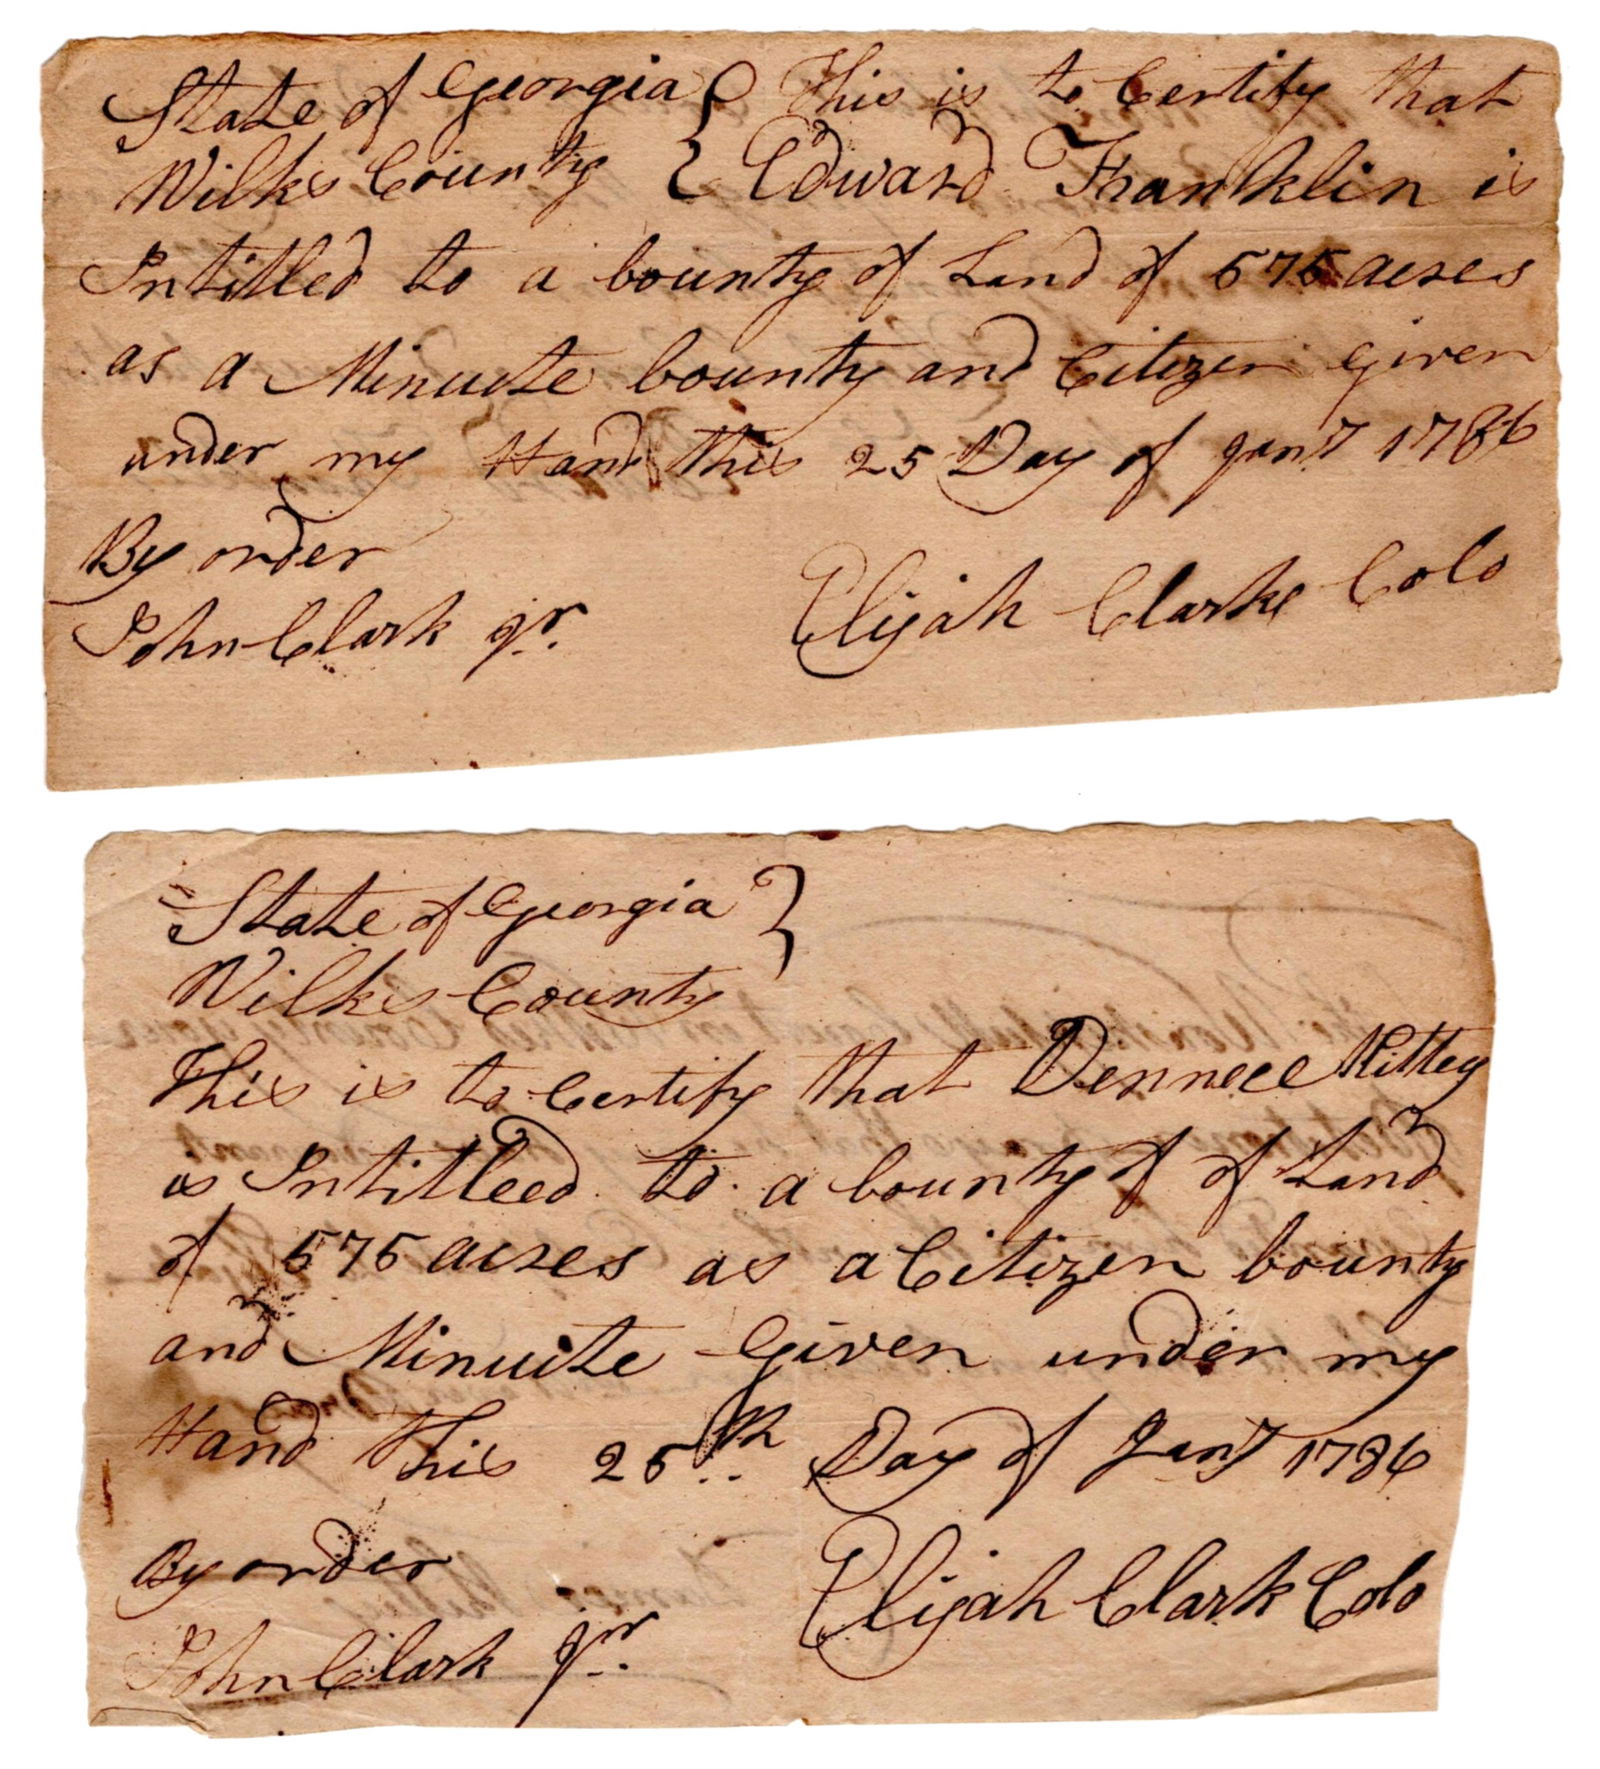 State of Georgia } This is to Certify that
Wilks County } Edward Franklin is
Intitled to a bounty of Land of 575 acres
as a Minuite bounty and Citizen given
under my Hand this 25 Day of Jany 1786
By order
Elijah Clarke Colo
John Clark jr.
State of Georgia }
Wilks County
This is to Certify that Dennece
is Intitleed to a bounty of of Land
of 575 acres as a Citizen bounty
and Minuite Given under my
Hand this 25th Day of Jany 1786
By order
Elijah Clark Colo
John Clark jr.